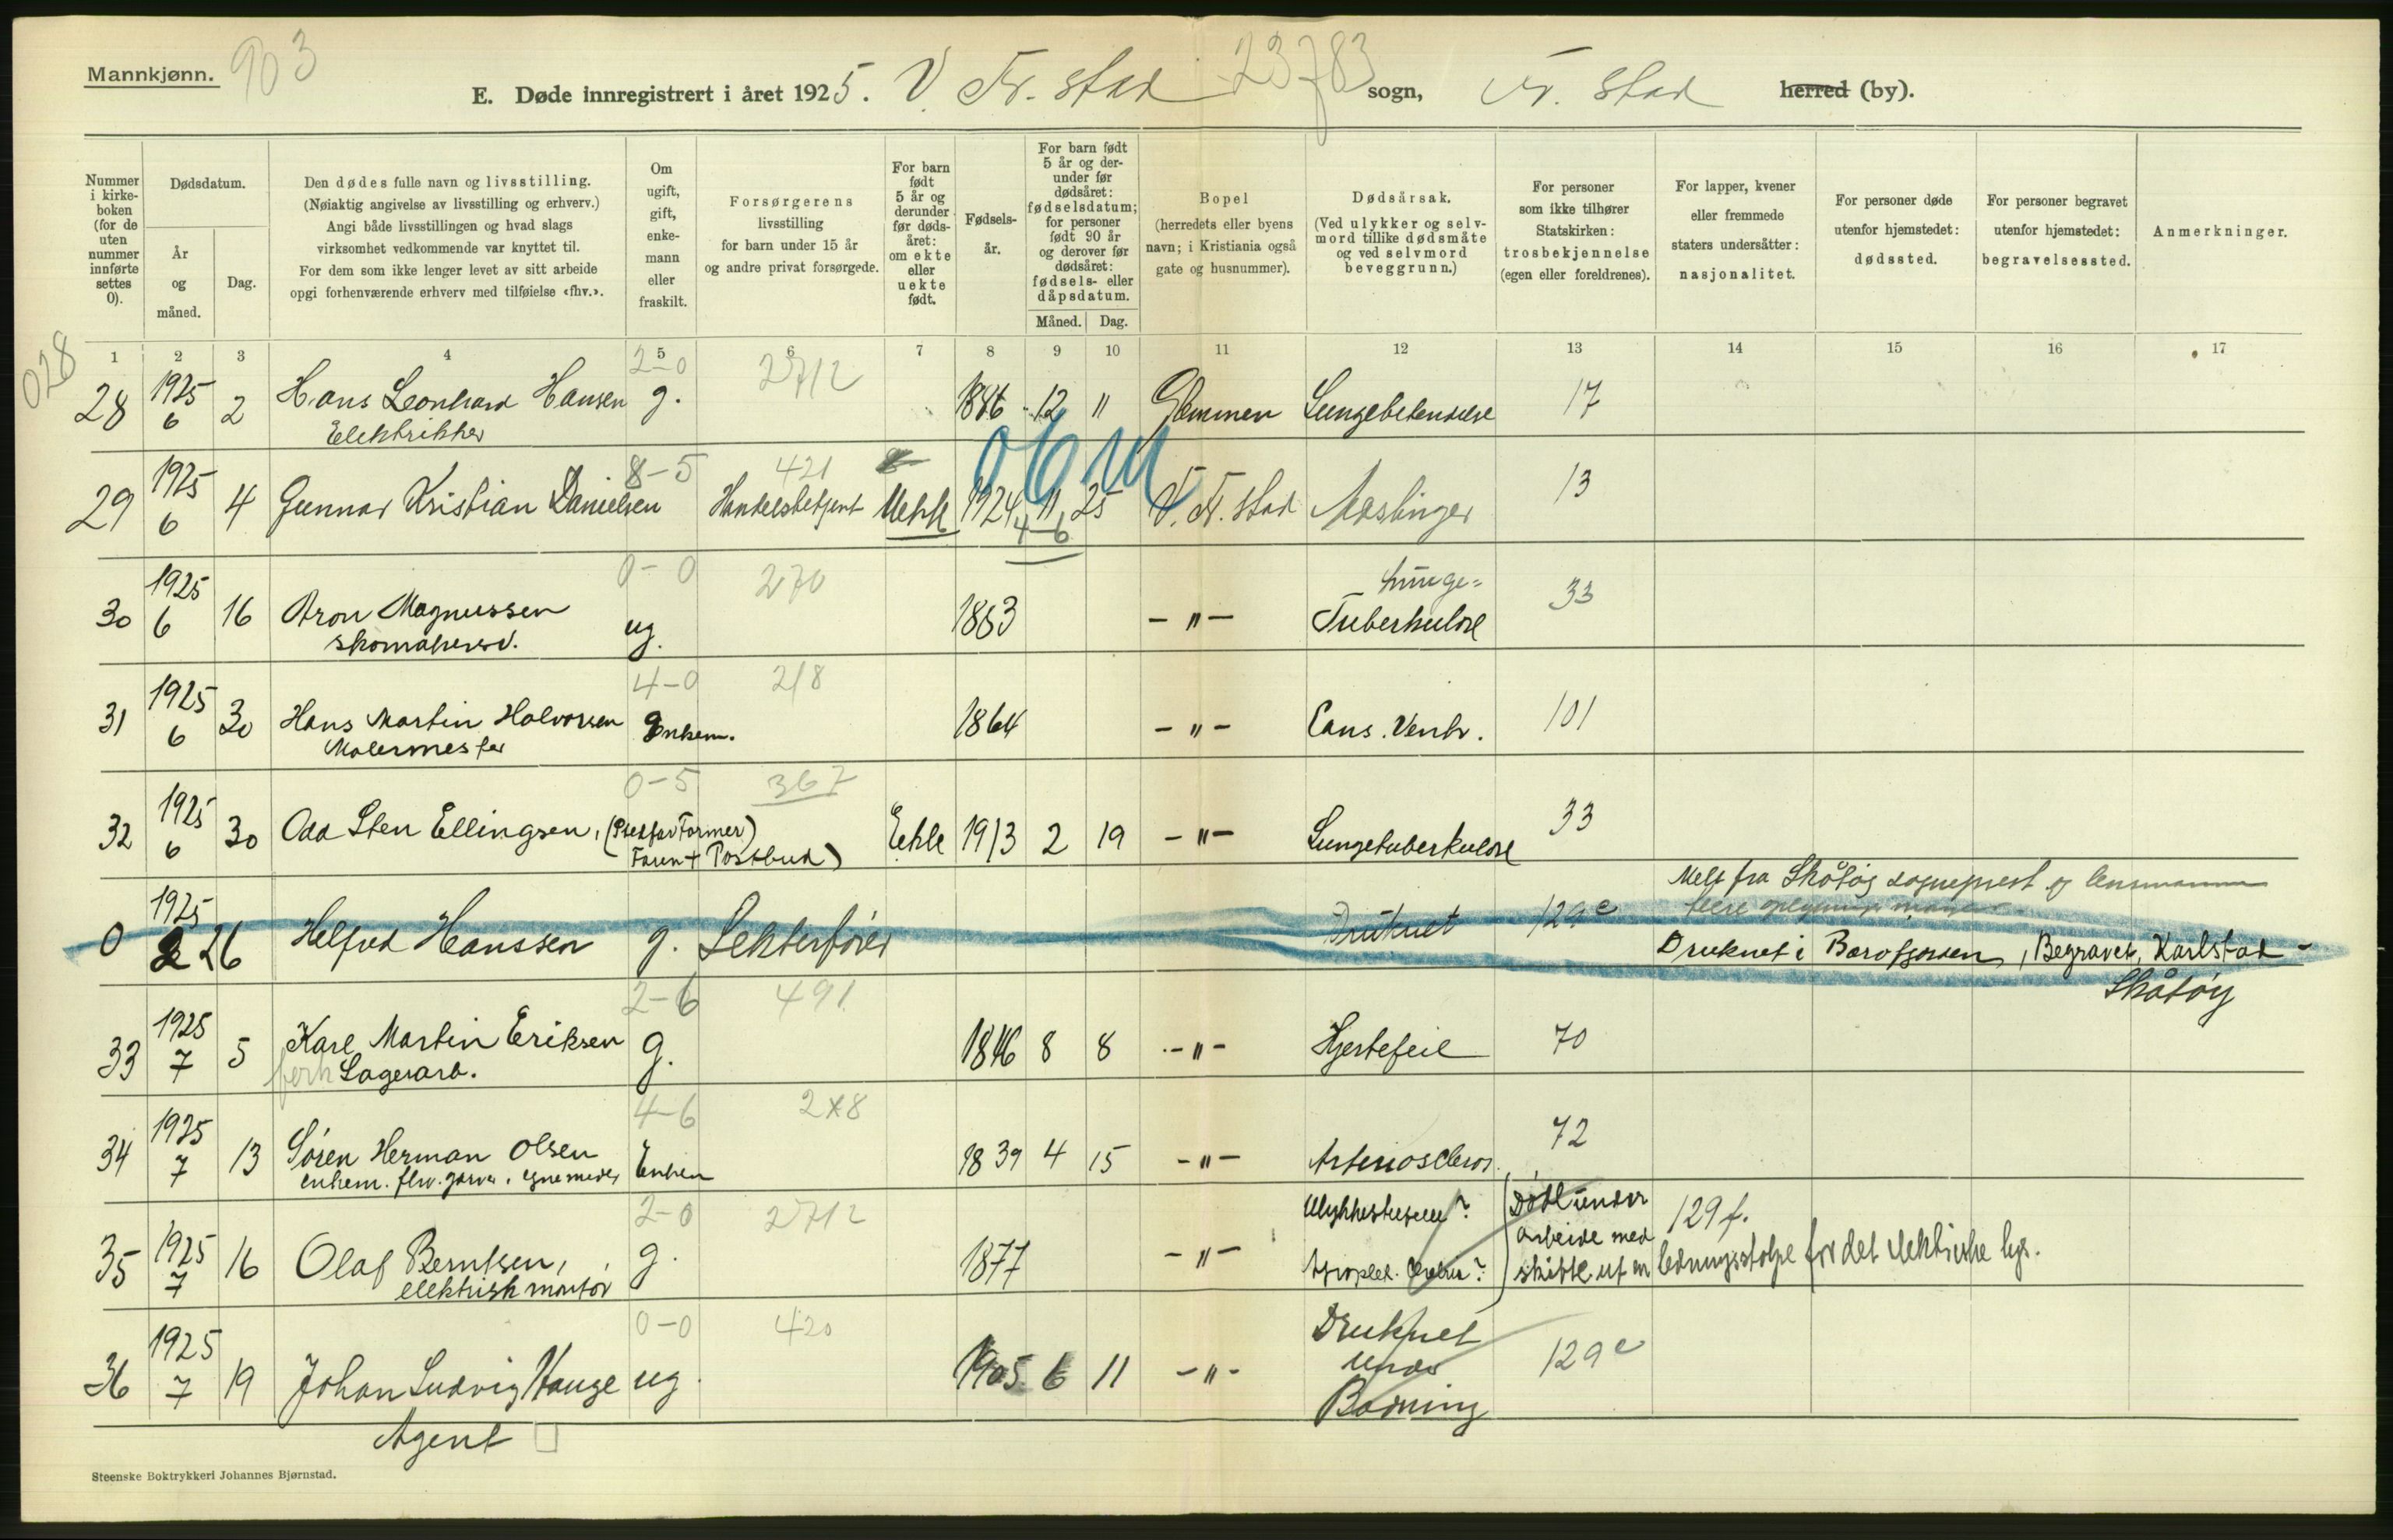 Mannkjønn.
903
E. Døde innregistrert i året 1925. V. Fr. stad sogn, Fr. stad herred (by).
23783
Nummer i kirkeboken (for de uten nummer innførte settes 0).
Dødsdatum.
År og måned.
Dag.
Den dødes fulle navn og livsstilling.
(Nøiaktig angivelse av livsstilling og erhverv.)
Angi både livsstillingen og hvad slags
virksomhet vedkommende var knyttet til.
For dem som ikke lenger levet av sitt arbeide
opgi forhenværende erhverv med tilføielse «fhv.».
Om ugift, gift, enkemann eller fraskilt.
Forsørgerens livsstilling
for barn under 15 år
og andre privat forsørgede.
For barn født 5 år og derunder før dødsåret: om ekte eller uekte født.
Fødselsår.
For barn født 5 år og derunder før dødsåret: fødselsdatum; for personer født 90 år og derover før dødsåret: fødsels- eller dåpsdatum.
Måned. Dag.
Bopel
(herredets eller byens navn; i Kristiania også gate og husnummer).
Dødsårsak.
(Ved ulykker og selvmord tillike dødsmåte og ved selvmord beveggrunn.)
For personer som ikke tilhører Statskirken: trosbekjennelse (egen eller foreldrenes).
For lapper, kvener eller fremmede staters undersåtter: nasjonalitet.
For personer døde utenfor hjemstedet: dødssted.
For personer begravet utenfor hjemstedet: begravelsessted.
Anmerkninger.
1 2 3 4 5 6 7 8 9 10 11 12 13 14 15 16 17
028
2-0 2712
28 1925 6 2 Hans Leonhard Hansen g. 1886 12 11 Glemmen Lungebetendelse 17
Elektrikker
8-5 421
29 1925 6 4 Gunnar Kristian Danielsen Handelsbetjent Uekte 1924 11 25 V. Fr. stad Meslinger 13
4-6
0-0 270
30 1925 6 16 Aron Magnussen ug. 1863 -"- Lunge=
Tuberkulose 33
skomakersv.
4-0 218
31 1925 6 30 Hans Martin Halvorsen Enkem. 1864 -"- Canc. Ventr. 101
Malermester
0-5 367
32 1925 6 30 Odd Sten Ellingsen, (Pleiefar Former) Eekte 1913 2 19 -"- Lungetuberkulose 33
Faren + Postbud)
Melt fra Skåtøy sogneprest og lensmannen
0 1925 2 26 Helfred Hanssen g. Lekterfører Druknet 129 e Druknet i Barofjorden, Begravet, Karlstad -
Skåtøy
2-6 491
33 1925 7 5 Karl Martin Eriksen g. 1846 8 8 -"- Hjertefeil 70
forh Lagerarb.
4-6 2x8
34 1925 7 13 Søren Herman Olsen Enkem 1839 4 15 -"- Arterioscleros. 72
enkem. fhv. garver
2-0 2712
35 1925 7 16 Olaf Berntsen, g. 1877 -"- Ulykkestilfelle? (Døde under 129 f.
elektrisk montør Apoplex. Cerebri? arbeide med
skifte ut en ledningsstolpe for det elektriske lys.
0-0 420
36 1925 7 19 Johan Ludvig Hauge ug. 1905 6 11 -"- Druknet
under
Badning 129 e
Agent
Steenske Boktrykkeri Johannes Bjørnstad.